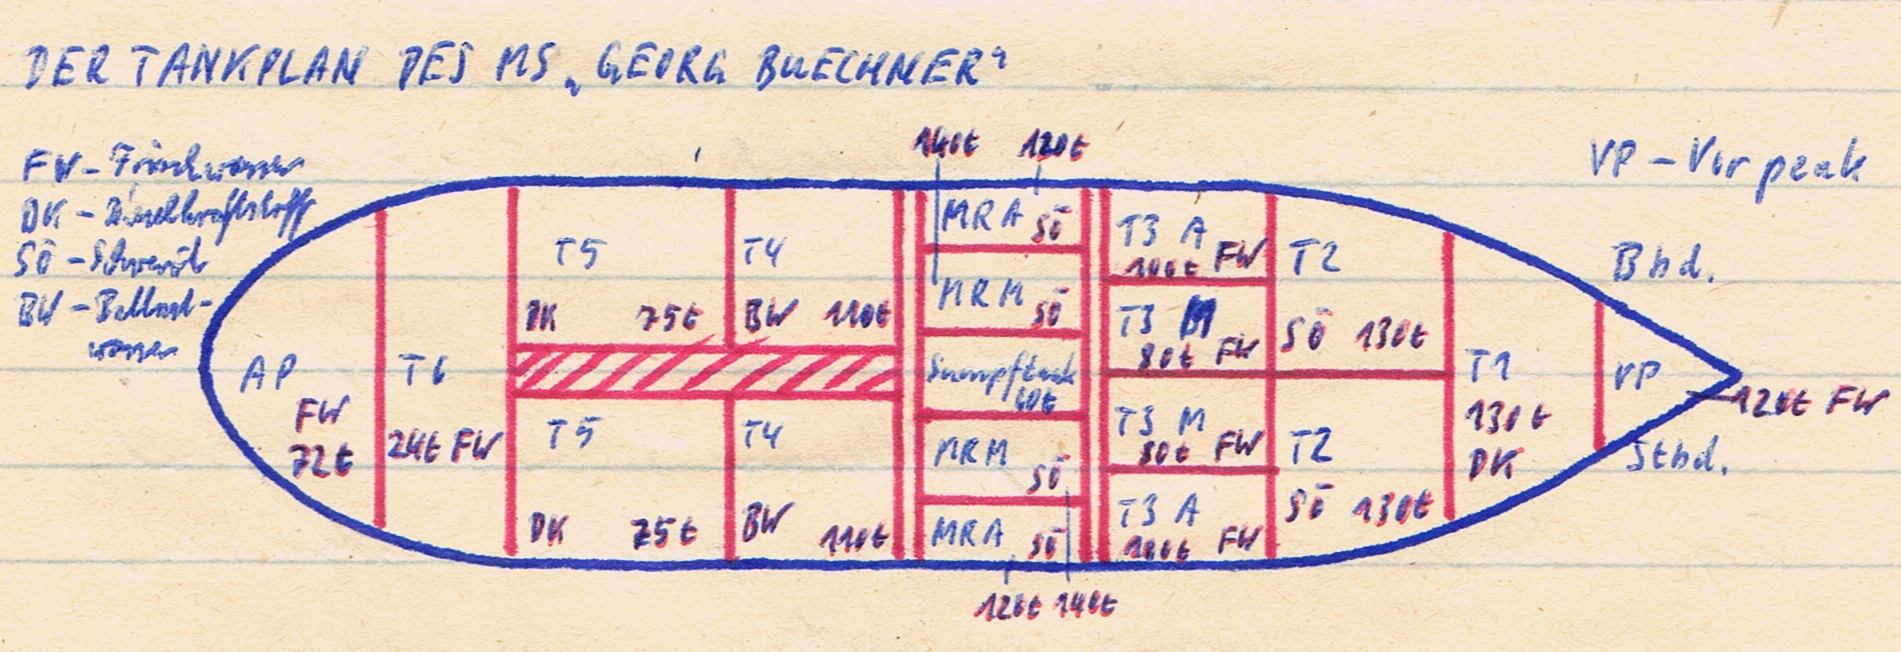 DER TANKPLAN DES MS „GEORG BUECHNER“
FW - Frischwasser
DK - Dieselkraftstoff
SÖ - Schweröl
BW - Ballast-
wasser
VP - Vorpeak
Bbd.
Stbd.
140t 120t
AP
FW
72t
T6
24t FW
T5
DK 75t
T4
BW 110t
T5
DK 75t
T4
BW 110t
MRA SÖ
MRM SÖ
Sumpftank
60t
MRM SÖ
MRA SÖ
120t 140t
T3 A
100t FW
T3 M
80t FW
T3 M
80t FW
T3 A
100t FW
T2
SÖ 130t
T2
SÖ 130t
T1
130t
DK
VP
120t FW